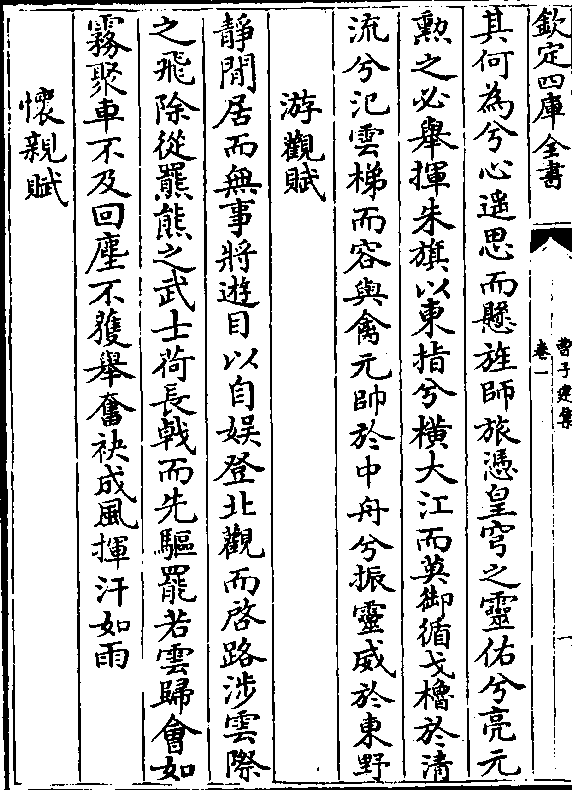 欽定四庫全書
曹子建集
卷一
其何為兮心遥思而懸旌師旅憑皇穹之靈佑兮亮元
勲之必舉揮朱旗以東指兮横大江而莫御循戈櫓於清
流兮氾雲梯而容與禽元帥於中舟兮振靈威於東野
游觀賦
靜閒居而無事將遊目以自娱登北觀而啓路涉雲際
之飛除從羆熊之武士荷長戟而先驅罷若雲歸會如
霧聚車不及回塵不獲舉奮袂成風揮汗如雨
懷親賦